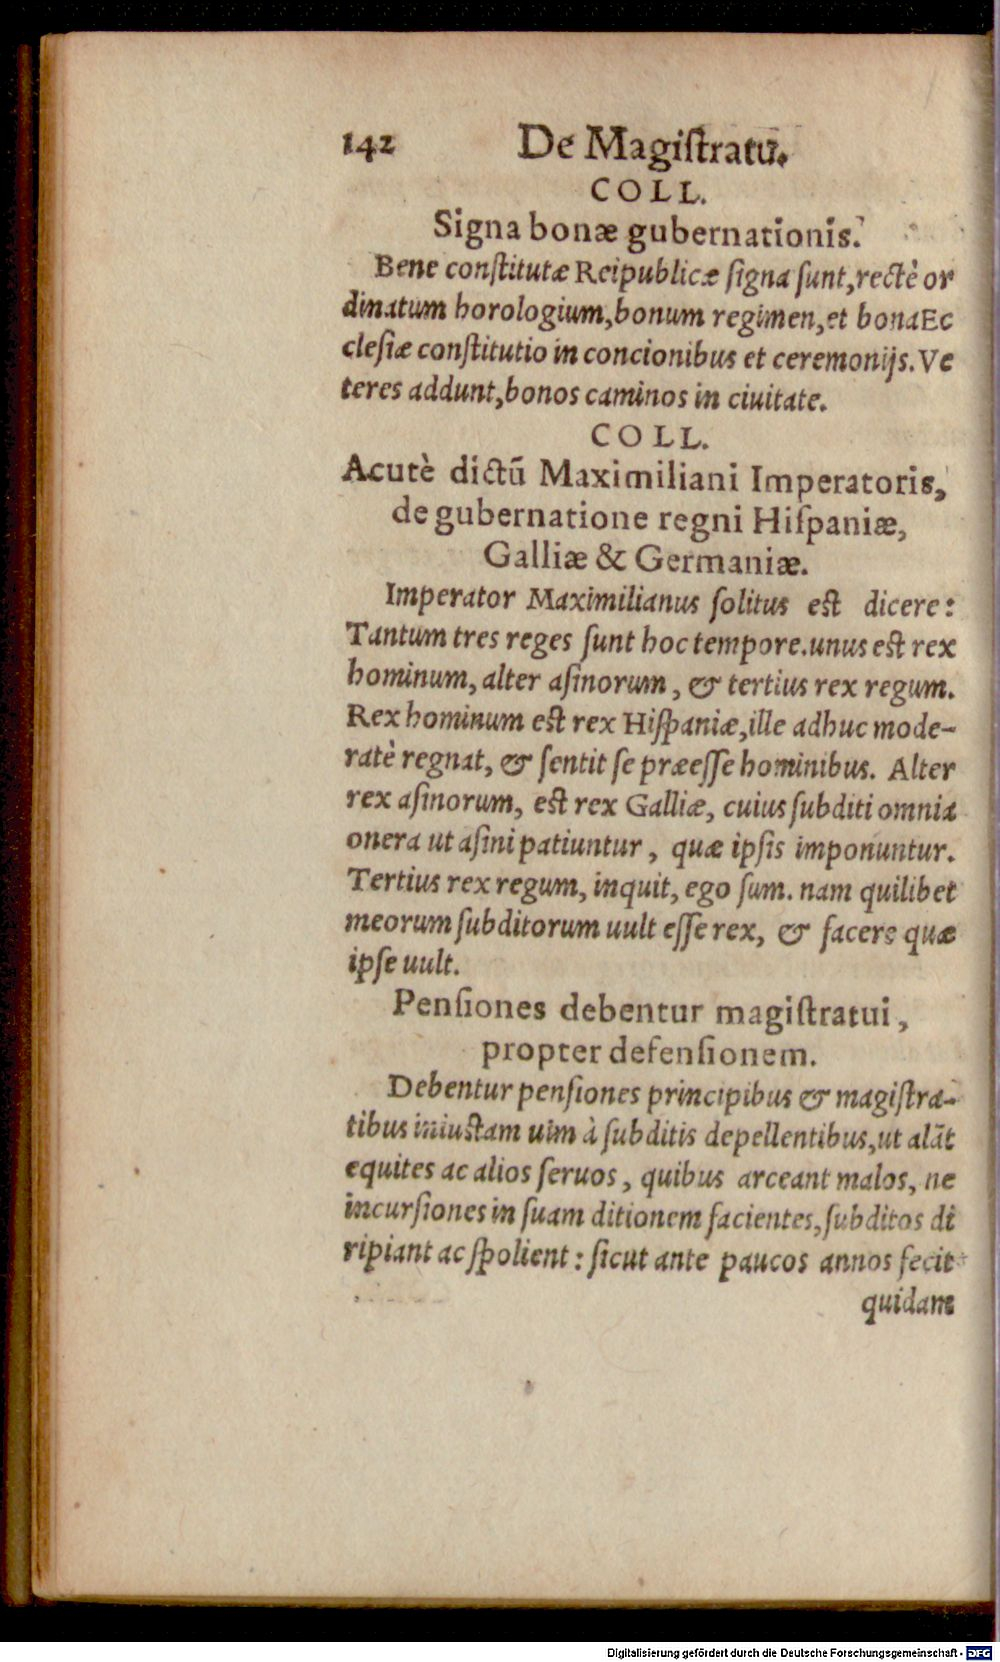 142 De Magiſtratu.
COLL.
Signa bonæ gubernationis.
Bene conſtitutæ Reipublicæ ſigna ſunt, rectè or
dinatum horologium, bonum regimen, et bona Ec
cleſiæ conſtitutio in concionibus et ceremonijs. Ve
teres addunt, bonos caminos in ciuitate.
COLL.
Acutè dictū Maximiliani Imperatoris,
de gubernatione regni Hiſpaniæ,
Galliæ & Germaniæ.
Imperator Maximilianus ſolitus eſt dicere:
Tantum tres reges ſunt hoc tempore. unus eſt rex
hominum, alter aſinorum, & tertius rex regum.
Rex hominum eſt rex Hiſpaniæ, ille adhuc mode-
ratè regnat, & ſentit ſe præeſſe hominibus. Alter
rex aſinorum, eſt rex Galliæ, cuius ſubditi omnia
onera ut aſini patiuntur, quæ ipſis imponuntur.
Tertius rex regum, inquit, ego ſum. nam quilibet
meorum ſubditorum uult eſſe rex, & facere quæ
ipſe uult.
Penſiones debentur magiſtratui,
propter defenſionem.
Debentur penſiones principibus & magiſtra-
tibus iniuſtam uim à ſubditis depellentibus, ut alāt
equites ac alios ſeruos, quibus arceant malos, ne
incurſiones in ſuam ditionem facientes, ſubditos di
ripiant ac ſpolient: ſicut ante paucos annos fecit
quidam
Digitalisierung gefördert durch die Deutsche Forschungsgemeinschaft - DFG